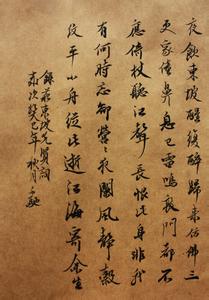 夜飲東坡醒復醉歸來仿佛三
更家僮鼻息已雷鳴敲門都不
應倚杖聽江聲長恨此身非我
有何時忘卻營營夜闌風靜縠
紋平小舟從此逝江海寄余生
錄蘇東坡先生詞
歲次癸巳年秋月